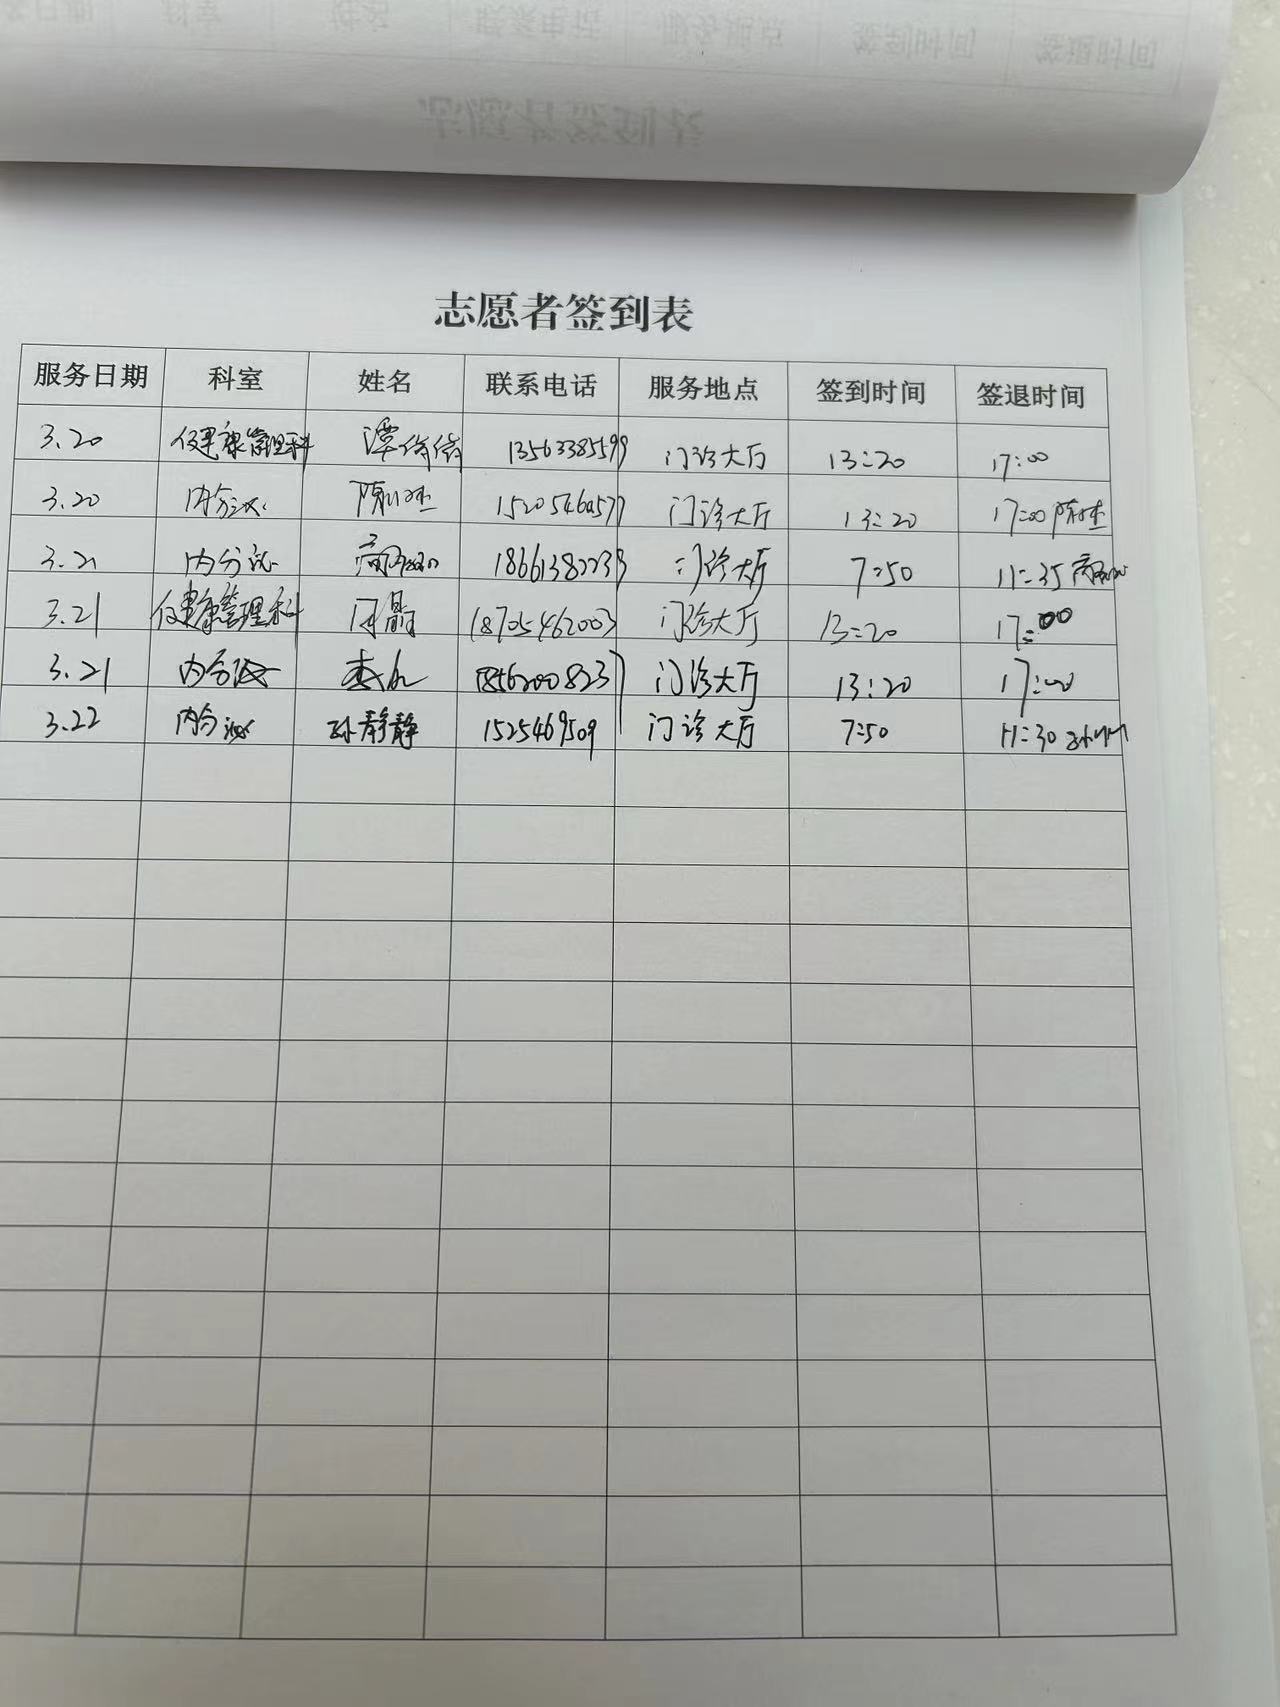 志愿者签到表
服务日期 科室 姓名 联系电话 服务地点 签到时间 签退时间
3.20 健康管理科 谭倩倩 13563385599 门诊大厅 13:20 17:00
3.20 内分泌 门诊大厅 13:20 17:00
3.21 内分泌 门诊大厅 7:50 11:35
3.21 健康管理科 闫晶 18705462003 门诊大厅 13:20 17:00
3.21 内分泌 18562008237 门诊大厅 13:20 17:00
3.22 内分泌 孙静静 1525469509 门诊大厅 7:50 11:30